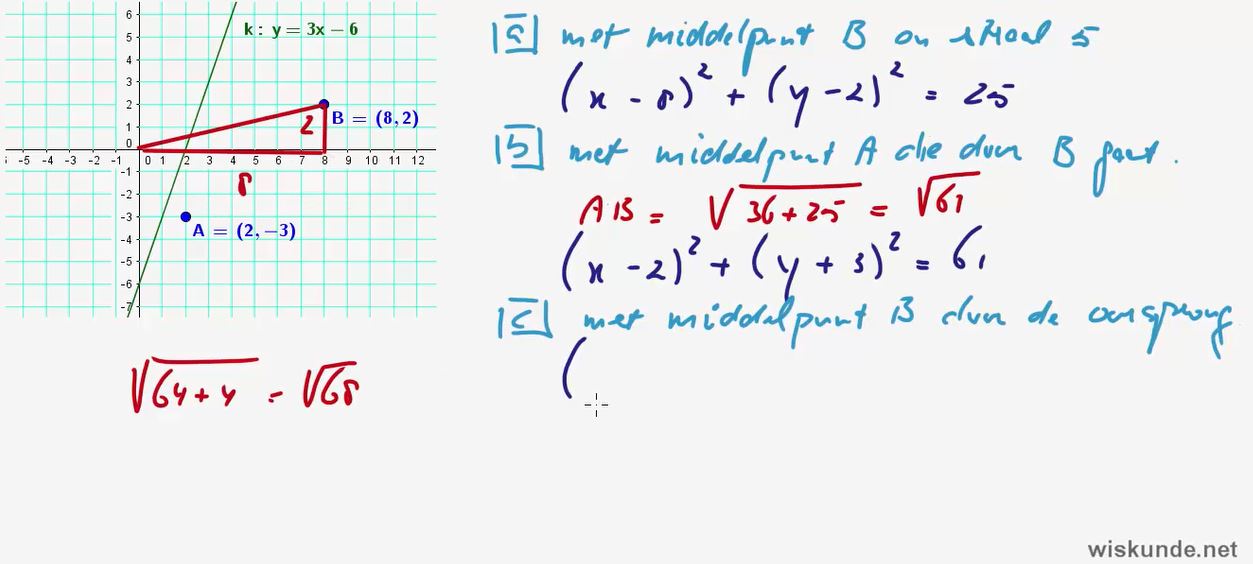 k: y = 3x − 6
6
5
4
3
2
1
0
-1
-2
-3
-4
-5
-6
-7
-5 -4 -3 -2 -1 0 1 2 3 4 5 6 7 8 9 10 11 12
2
B = (8, 2)
8
A = (2, −3)
√64+4 = √68
a met middelpunt B en straal 5
(x - 8)² + (y - 2)² = 25
b met middelpunt A die door B gaat.
AB = √36+25 = √61
(x - 2)² + (y + 3)² = 61
c met middelpunt B door de oorsprong
(
wiskunde.net